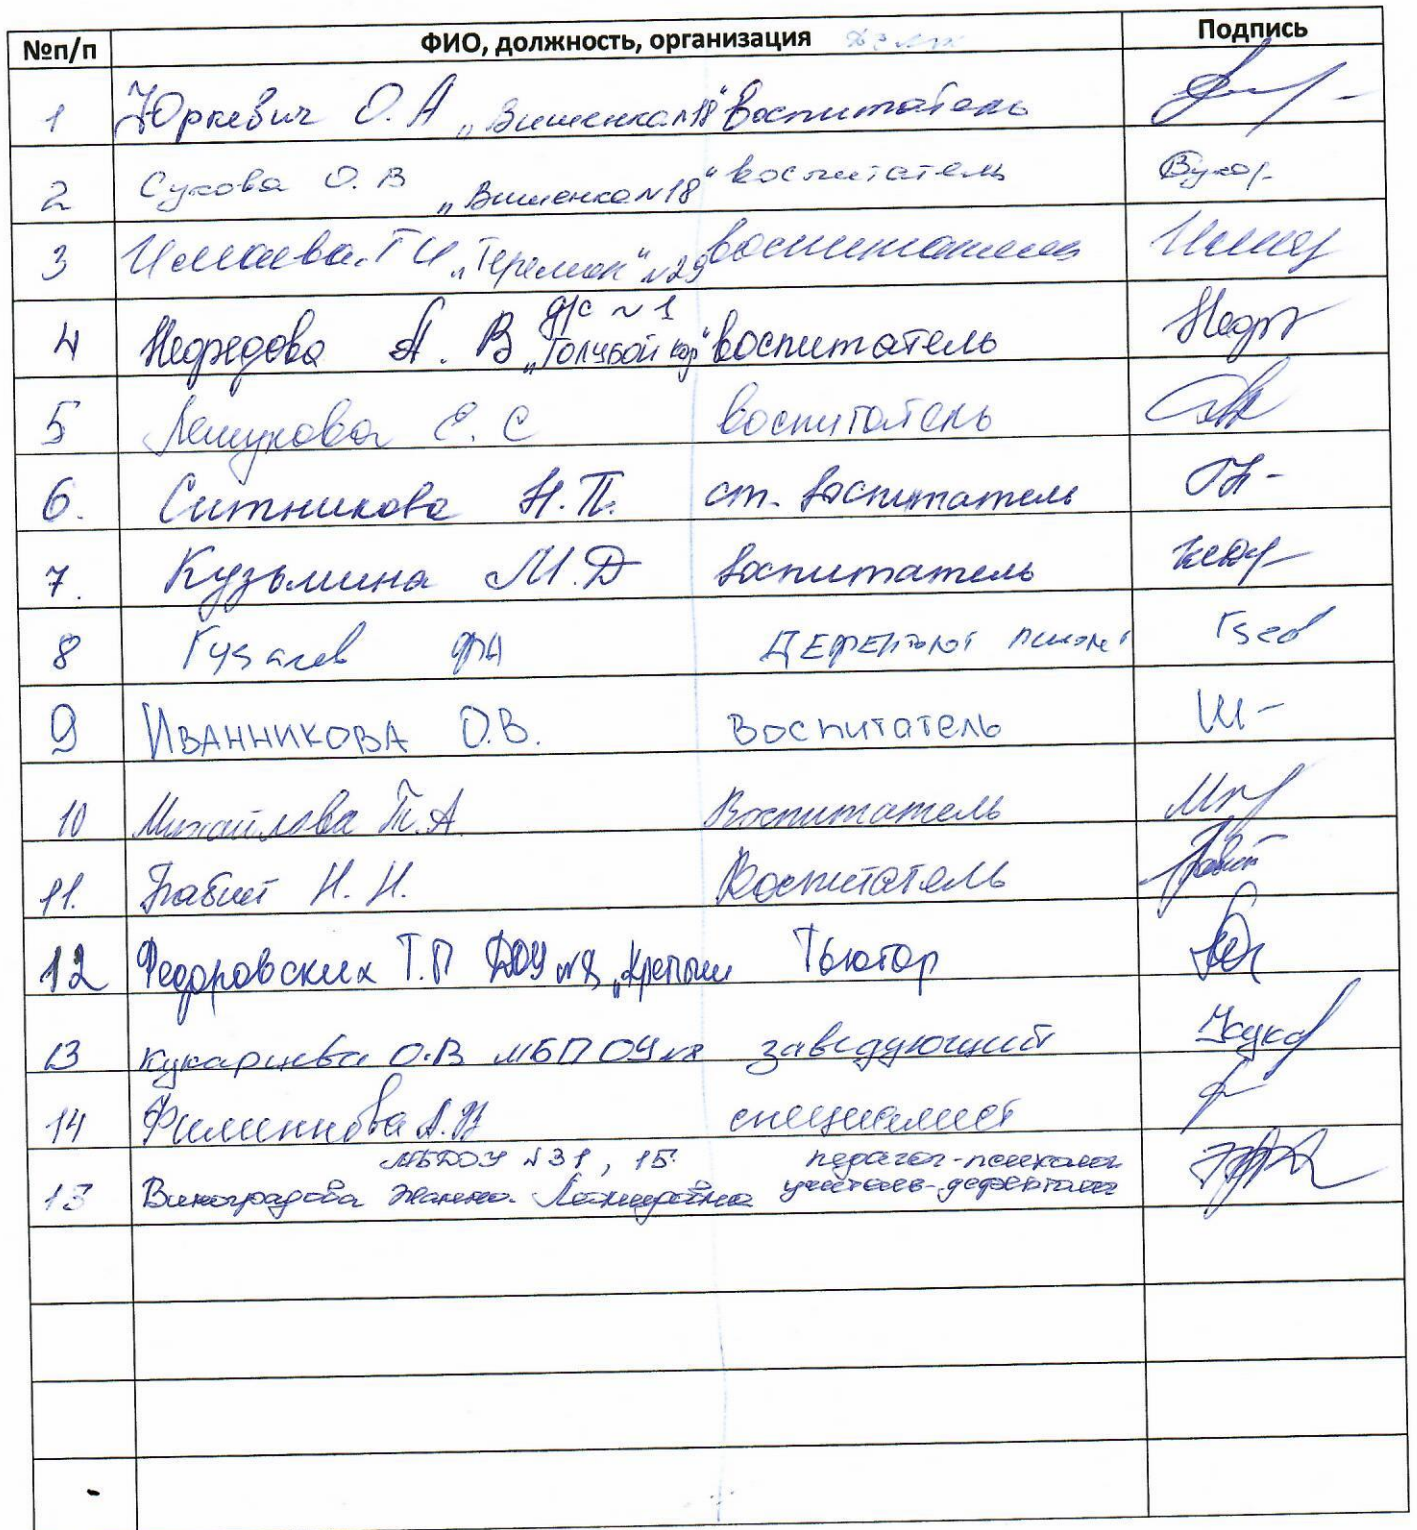 №п/п ФИО, должность, организация Подпись
1 Юркевич О. А „Вишенка №18" воспитатель
2 Сухова О. В „Вишенка №18" воспитатель
3 Исмаева Г И „Теремок" №29 воспитатель
4 Недредова А. В д/с №1 „Голубой кор" воспитатель
5 Лешукова Е. С воспитатель
6. Ситникова Н. П. ст. воспитатель
7. Кузьмина М. Д воспитатель
8 Гузалев ФА Дефектолог
9 Иванникова О.В. Воспитатель
10 Михайлова Т. А. Воспитатель
11. Бабит Н. Н. Воспитатель
12 Федоровских Т.П ДОУ №8 „Крепыш Тьютор
13 Кукарцева О.В заведующий
14 Филиппова А.В специалист
МБДОУ №31, 15 педагог-психолог
15 Виноградова Жанна учитель-дефектолог